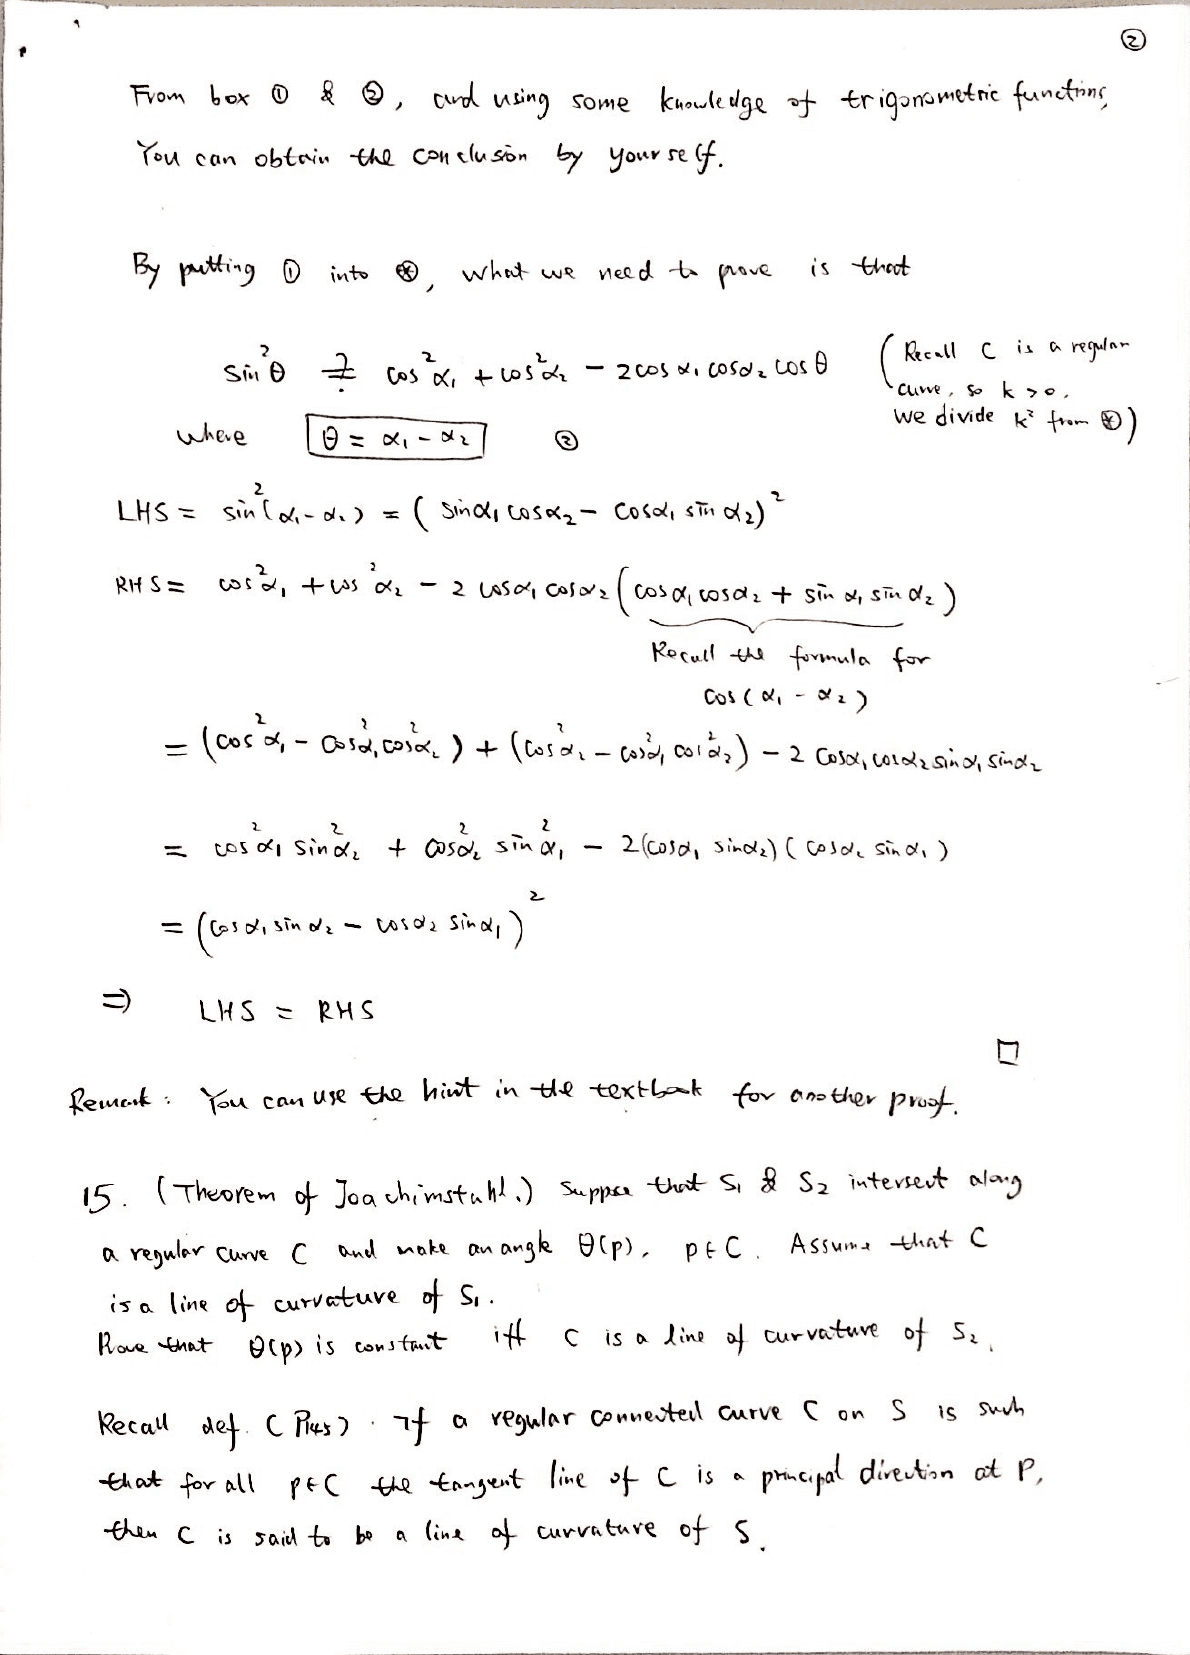 ②
From box ① & ②, and using some knowledge of trigonometric functions,
You can obtain the conclusion by yourself.
By putting ① into ⊛, what we need to prove is that
sin²θ ≟ cos²α₁ + cos²α₂ − 2cosα₁cosα₂cosθ
(Recall C is a regular
curve, so k>0,
we divide k² from ⊛)
where θ = α₁ − α₂ ②
LHS = sin²(α₁−α₂) = (sinα₁cosα₂ − cosα₁sinα₂)²
RHS = cos²α₁ + cos²α₂ − 2cosα₁cosα₂(cosα₁cosα₂ + sinα₁sinα₂)
Recall the formula for
cos(α₁ − α₂)
= (cos²α₁ − cos²α₁cos²α₂) + (cos²α₂ − cos²α₁cos²α₂) − 2cosα₁cosα₂sinα₁sinα₂
= cos²α₁sin²α₂ + cos²α₂sin²α₁ − 2(cosα₁sinα₂)(cosα₂sinα₁)
= (cosα₁sinα₂ − cosα₂sinα₁)²
⇒ LHS = RHS
□
Remark: You can use the hint in the textbook for another proof.
15. (Theorem of Joachimstahl.) Suppose that S₁ & S₂ intersect along
a regular curve C and make an angle θ(p), p∈C. Assume that C
is a line of curvature of S₁.
Prove that θ(p) is constant iff C is a line of curvature of S₂.
Recall def. (P145). If a regular connected curve C on S is such
that for all p∈C the tangent line of C is a principal direction at P,
then C is said to be a line of curvature of S.